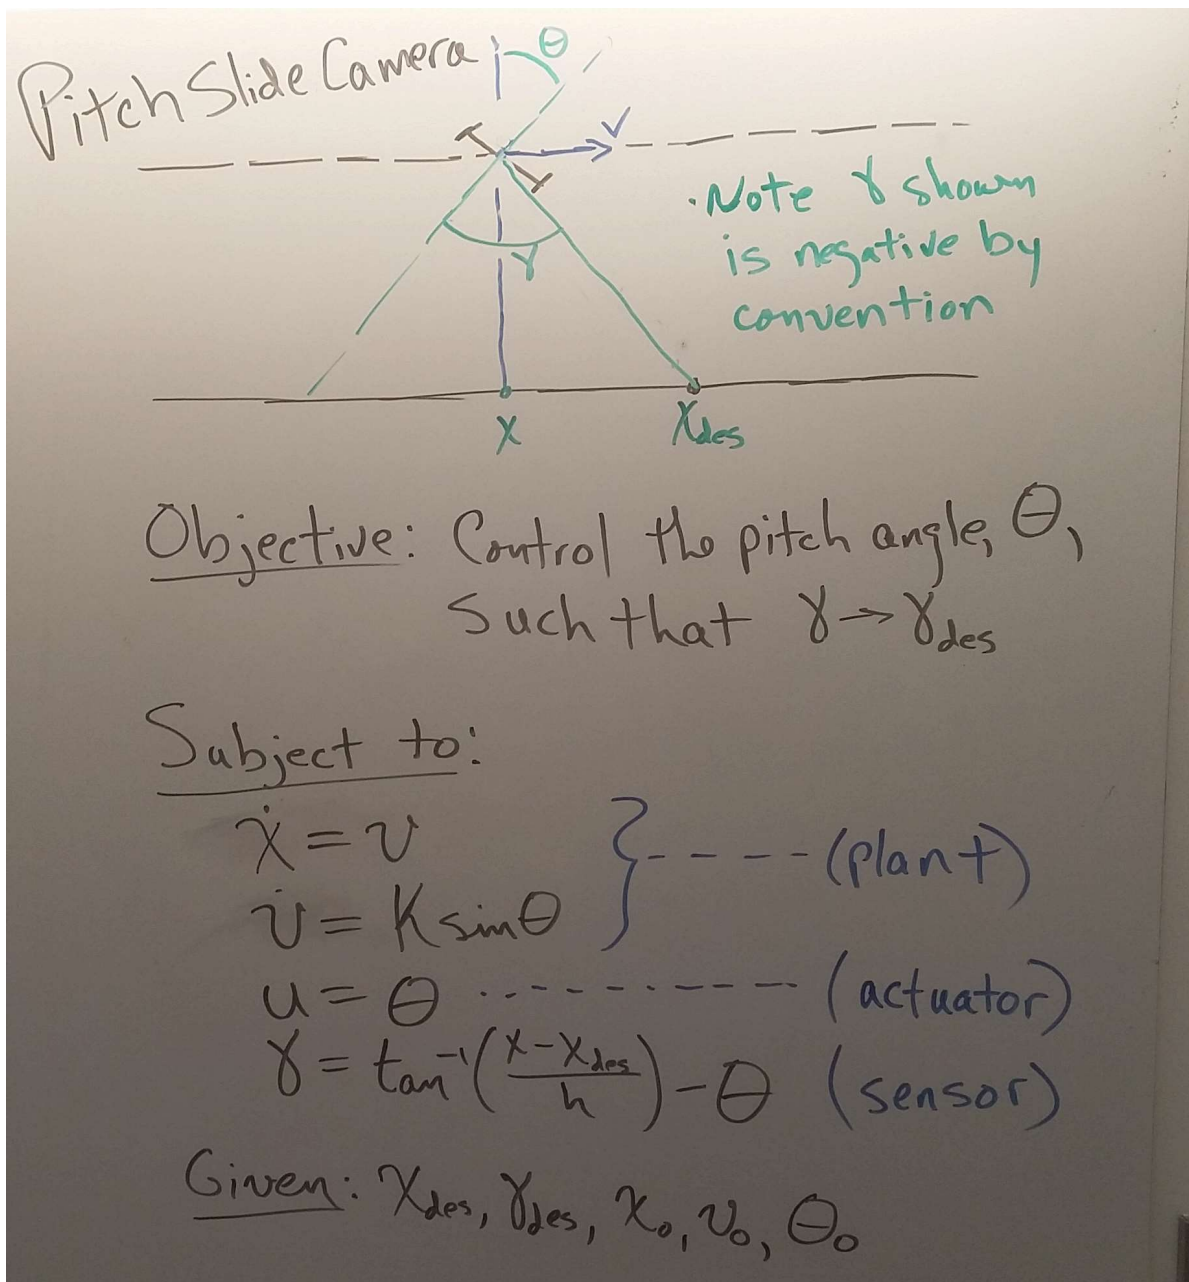 Pitch Slide Camera
θ
v
γ
· Note γ shown
is negative by
convention
x
x_des
Objective: Control the pitch angle, θ,
such that γ → γ_des
Subject to:
ẋ = v
v̇ = K sinθ } - - - - (plant)
u = θ - - - - - - - - (actuator)
γ = tan⁻¹((x - x_des)/h) - θ (sensor)
Given: x_des, γ_des, x₀, v₀, θ₀